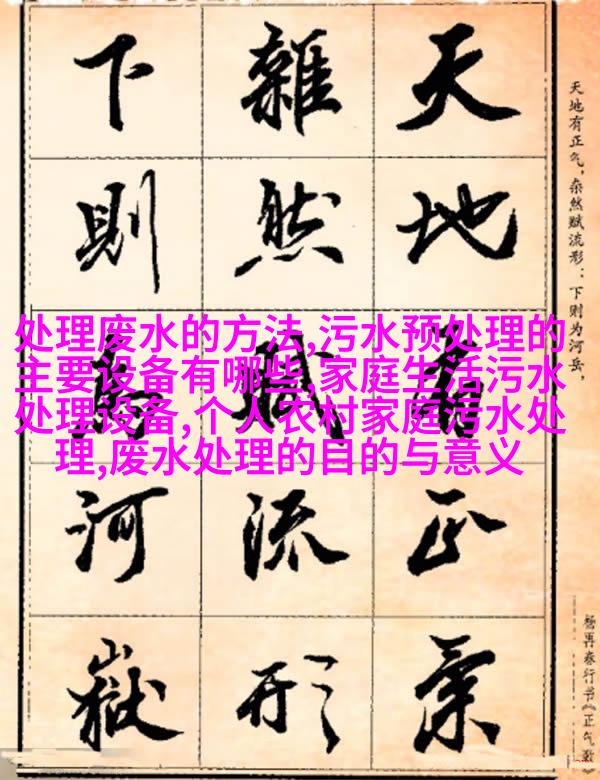 天地有正氣
雜然賦流形
下則為河嶽
天地有正气，杂然赋流形：下则为河岳，
杨再春行书《正气歌》
处理废水的方法,污水预处理的
主要设备有哪些,家庭生活污水
处理设备,个人农村家庭污水处
理,废水处理的目的与意义